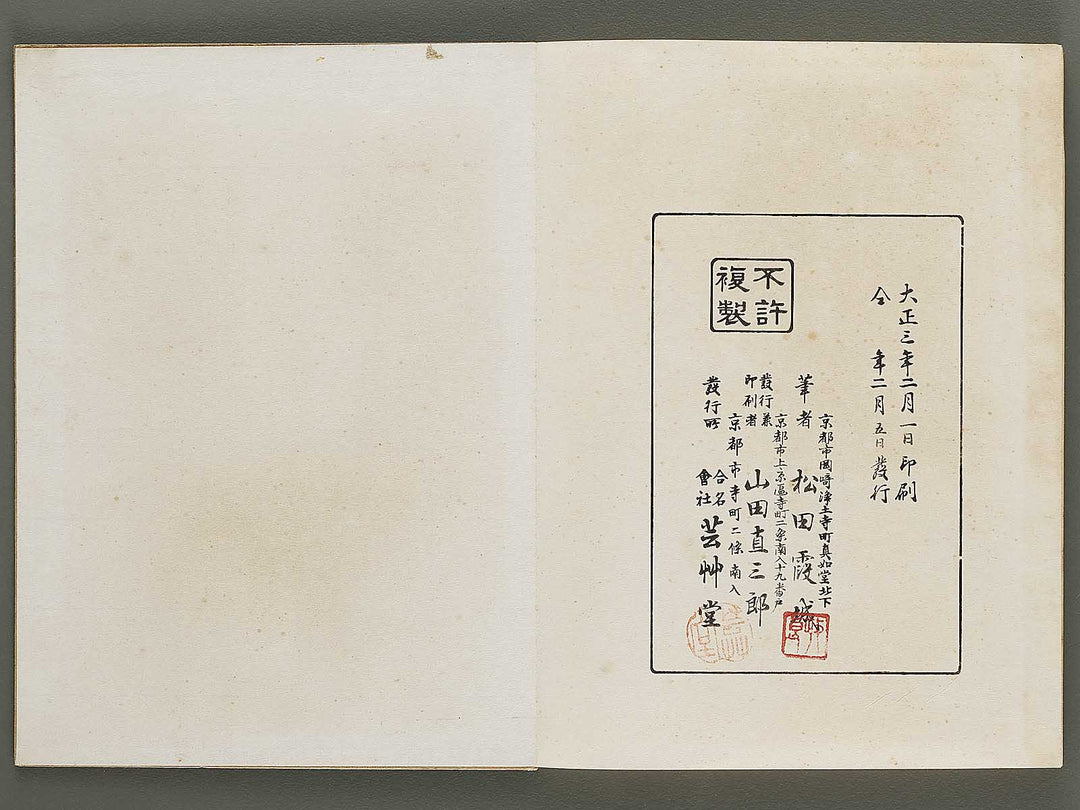 大正三年二月一日印刷
仝年二月五日發行
不許
複製
京都市岡崎浄土寺町真如堂北下
筆者 松田霞城
京都市上京區寺町二条南入十九番戸
發行兼
印刷者 山田直三郎
京都市寺町二條南入
發行所 合名
會社 芸艸堂